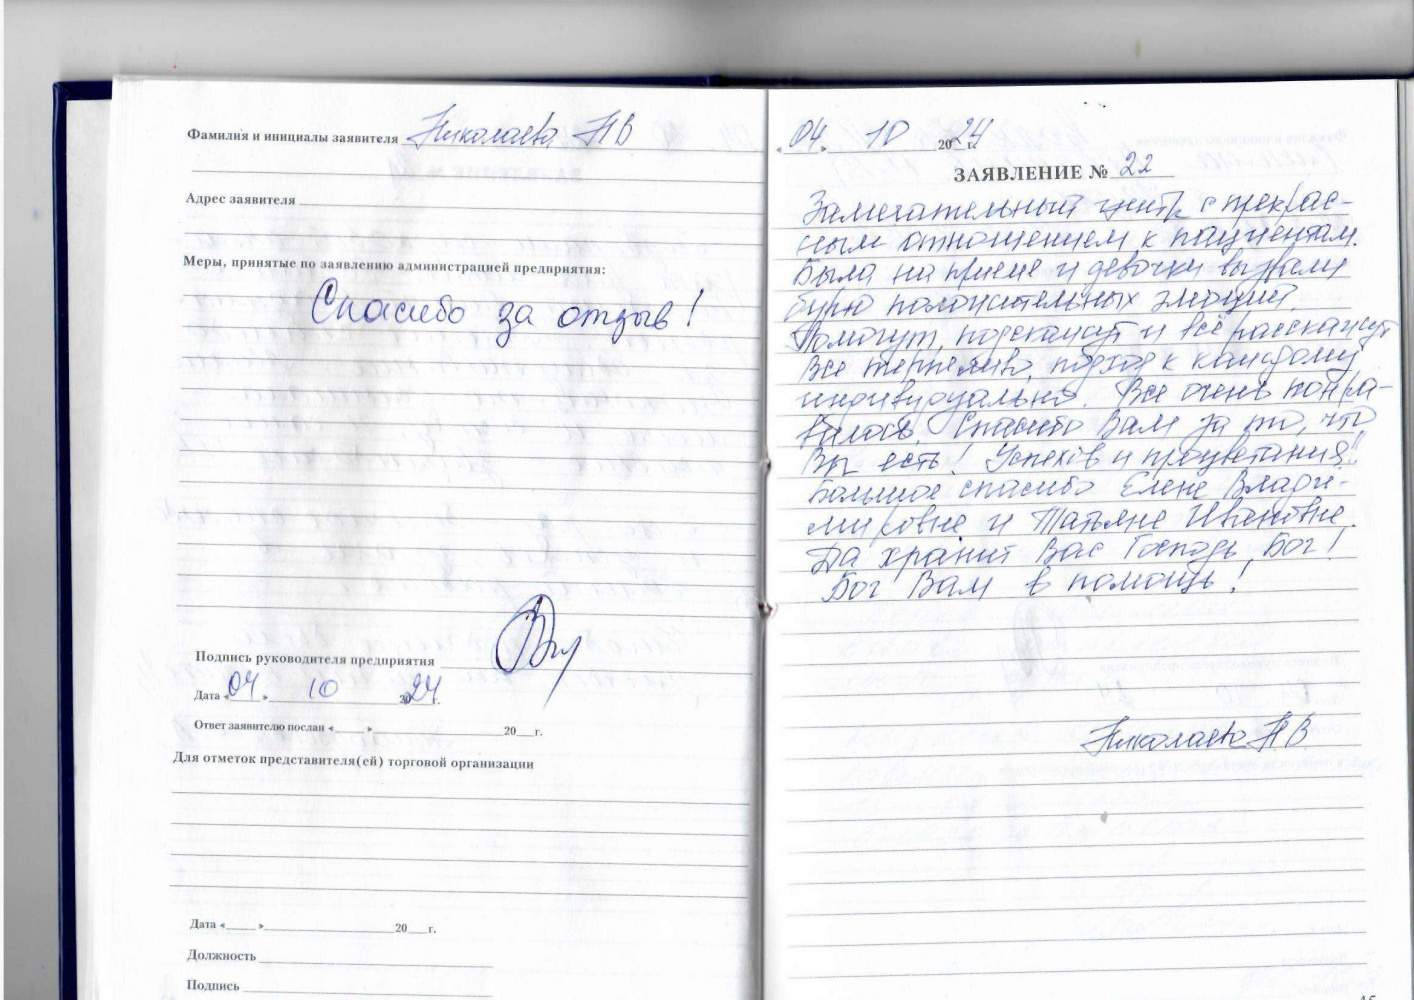 Фамилия и инициалы заявителя Николаева Н В
Адрес заявителя
Меры, принятые по заявлению администрацией предприятия:
Спасибо за отзыв!
Подпись руководителя предприятия
Дата «04» 10 2024г.
Ответ заявителю послан «___» 20___г.
Для отметок представителя(ей) торговой организации
Дата «___» 20___г.
Должность
Подпись
«04» 10 2024 г.
ЗАЯВЛЕНИЕ № 22
Замечательный центр с прекрас-
ным отношением к пациентам.
Была на приеме и девочки вызвали
бурю положительных эмоций.
Помогут, подскажут и всё расскажут
Все терпеливо, подход к каждому
индивидуально. Все очень понра-
вилось. Спасибо Вам за то, что
Вы есть! Успехов и процветания!!
Большое спасибо Елене Влади-
мировне и Татьяне Ивановне.
Да хранит Вас Господь Бог!
Бог Вам в помощь!
Николаева Н В